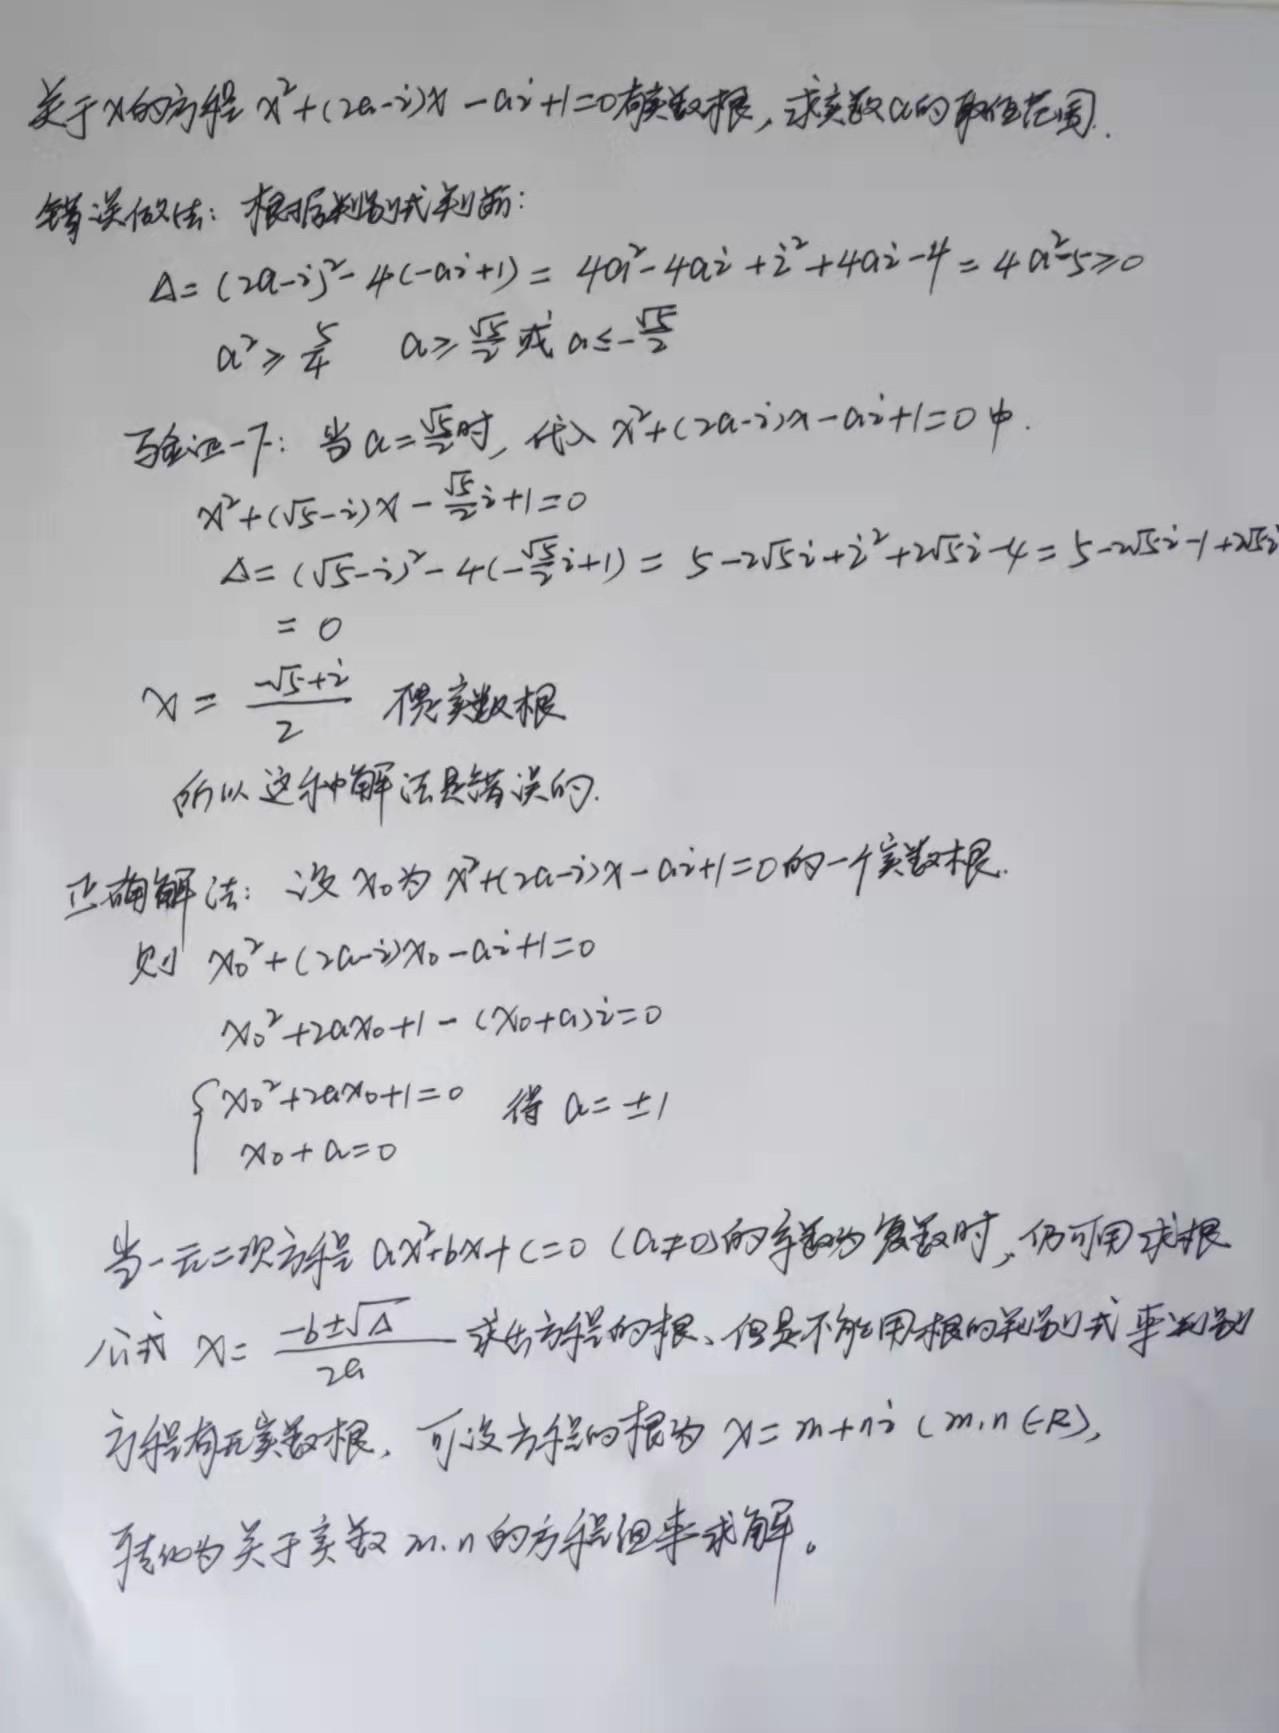 关于x的方程x²+(2a-i)x-ai+1=0有实数根,求实数a的取值范围.
错误做法:根据判别式判断:
Δ=(2a-i)²-4(-ai+1)=4a²-4ai+i²+4ai-4=4a²-5≥0
a²≥5/4 a≥√5/2或a≤-√5/2
验证一下:当a=√5/2时,代入x²+(2a-i)x-ai+1=0中.
x²+(√5-i)x-√5/2i+1=0
Δ=(√5-i)²-4(-√5/2i+1)=5-2√5i+i²+2√5i-4=5-2√5i-1+2√5i
=0
x=(-√5+i)/2 不是实数根
所以这种解法是错误的.
正确解法:设x₀为x²+(2a-i)x-ai+1=0的一个实数根.
则 x₀²+(2a-i)x₀-ai+1=0
x₀²+2ax₀+1-(x₀+a)i=0
{x₀²+2ax₀+1=0 得a=±1
x₀+a=0
当一元二次方程ax²+bx+c=0(a≠0)的系数为复数时,仍可用求根
公式 x=(-b±√Δ)/2a 求出方程的根、但是不能用根的判别式来判别
方程有无实数根,可设方程的根为x=m+ni(m.n∈R),
转化为关于实数m.n的方程组来求解。